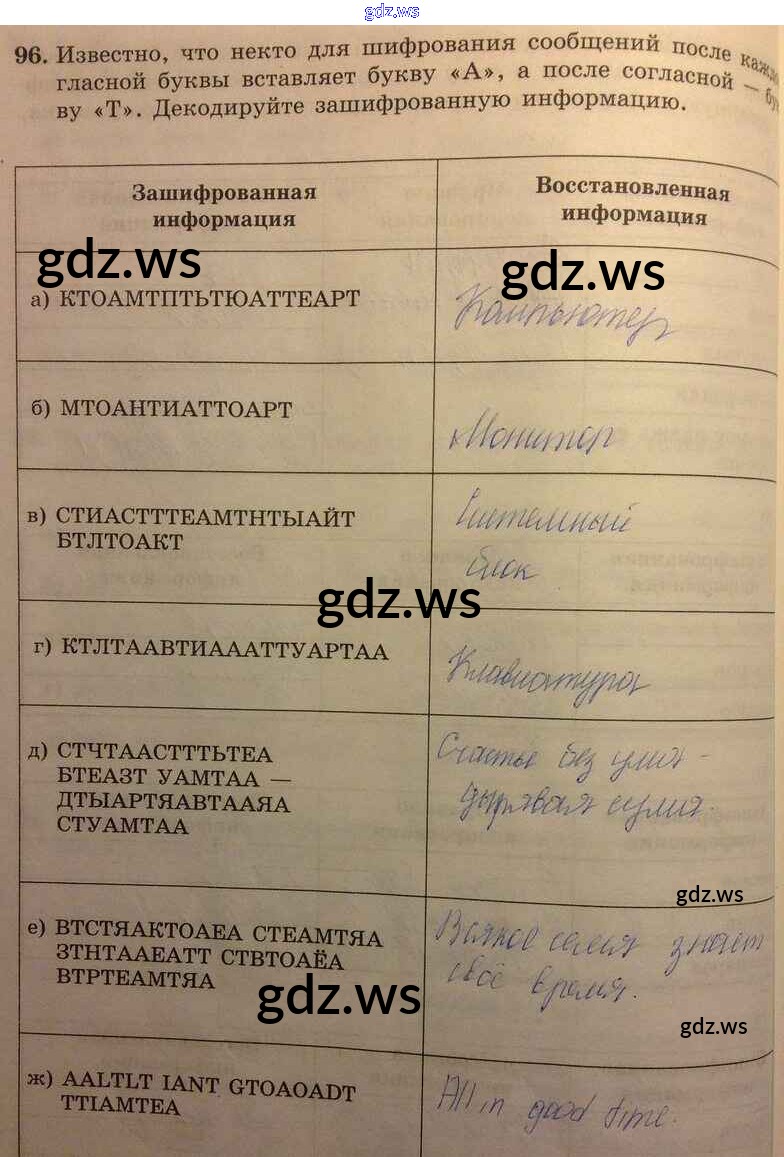 gdz.ws
96. Известно, что некто для шифрования сообщений после кажд
гласной буквы вставляет букву «А», а после согласной — бук
ву «Т». Декодируйте зашифрованную информацию.
Зашифрованная
информация
Восстановленная
информация
gdz.ws
gdz.ws
а) КТОАМТПТЬТЮАТТЕАРТ
Компьютер
б) МТОАНТИАТТОАРТ
Монитор
в) СТИАСТТТЕАМТНТЫАЙТ
БТЛТОАКТ
Системный
блок
gdz.ws
г) КТЛТААВТИАААТТУАРТАА
Клавиатура
д) СТЧТААСТТТЬТЕА
БТЕАЗТ УАМТАА —
ДТЫАРТЯАВТААЯА
СТУАМТАА
Счастье без ума -
дырявая сума.
gdz.ws
е) ВТСТЯАКТОАЕА СТЕАМТЯА
ЗТНТААЕАТТ СТВТОАЁА
ВТРТЕАМТЯА
Всякое семя знает
своё время.
gdz.ws
gdz.ws
ж) AALTLT IANT GTOAOADT
TTIAMTEA
All in good time.